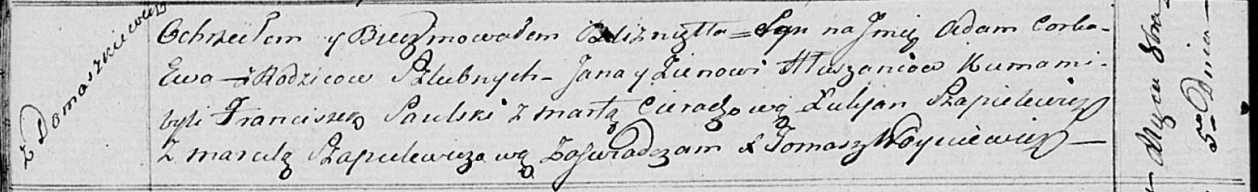 z Domaszkiewicz
Ochrzciłem y Bierzmowałem Blizniętta = Syn na Jmię Adam Corka
Ewa — z Rodzicow Szlubnych — Jana y Zienowi Hłuszaniow Kumami
byli Franciszek Saulski z martą Cieraszową Lulijan Szapielewicz
z marcelą Szapielewiczową Zaswiadczam X Tomasz Woyniewicz —
5° Dnia